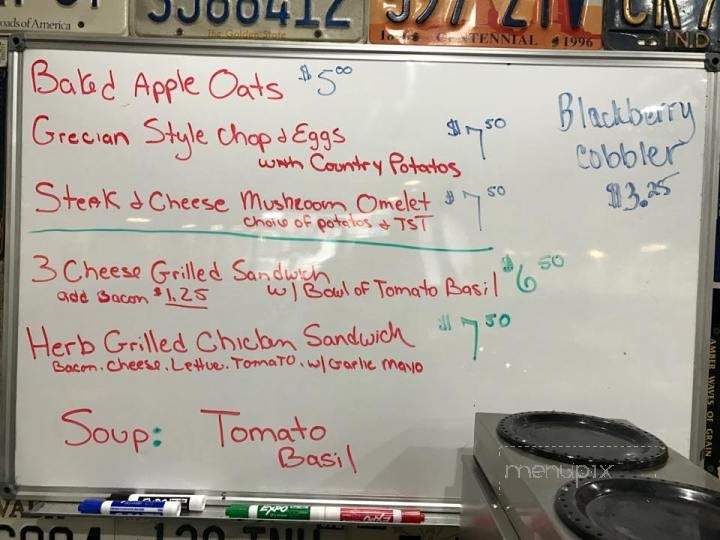 oads of America
5J88412
The Golden State
1996
CENTENNIAL
IND
Baked Apple Oats $5.00
Grecian Style Chop & Eggs $7.50
with Country Potatos
Steak & Cheese Mushroom Omelet $7.50
choice of potatos & TST
3 Cheese Grilled Sandwich
add Bacon $1.25 w/ Bowl of Tomato Basil $6.50
Herb Grilled Chicken Sandwich $7.50
Bacon. Cheese. Lettuc. Tomato. w/ Garlic Mayo
Soup: Tomato
Basil
Blackberry
Cobbler
$3.25
AMBER WAVES OF GRAIN
menupix
EXPO